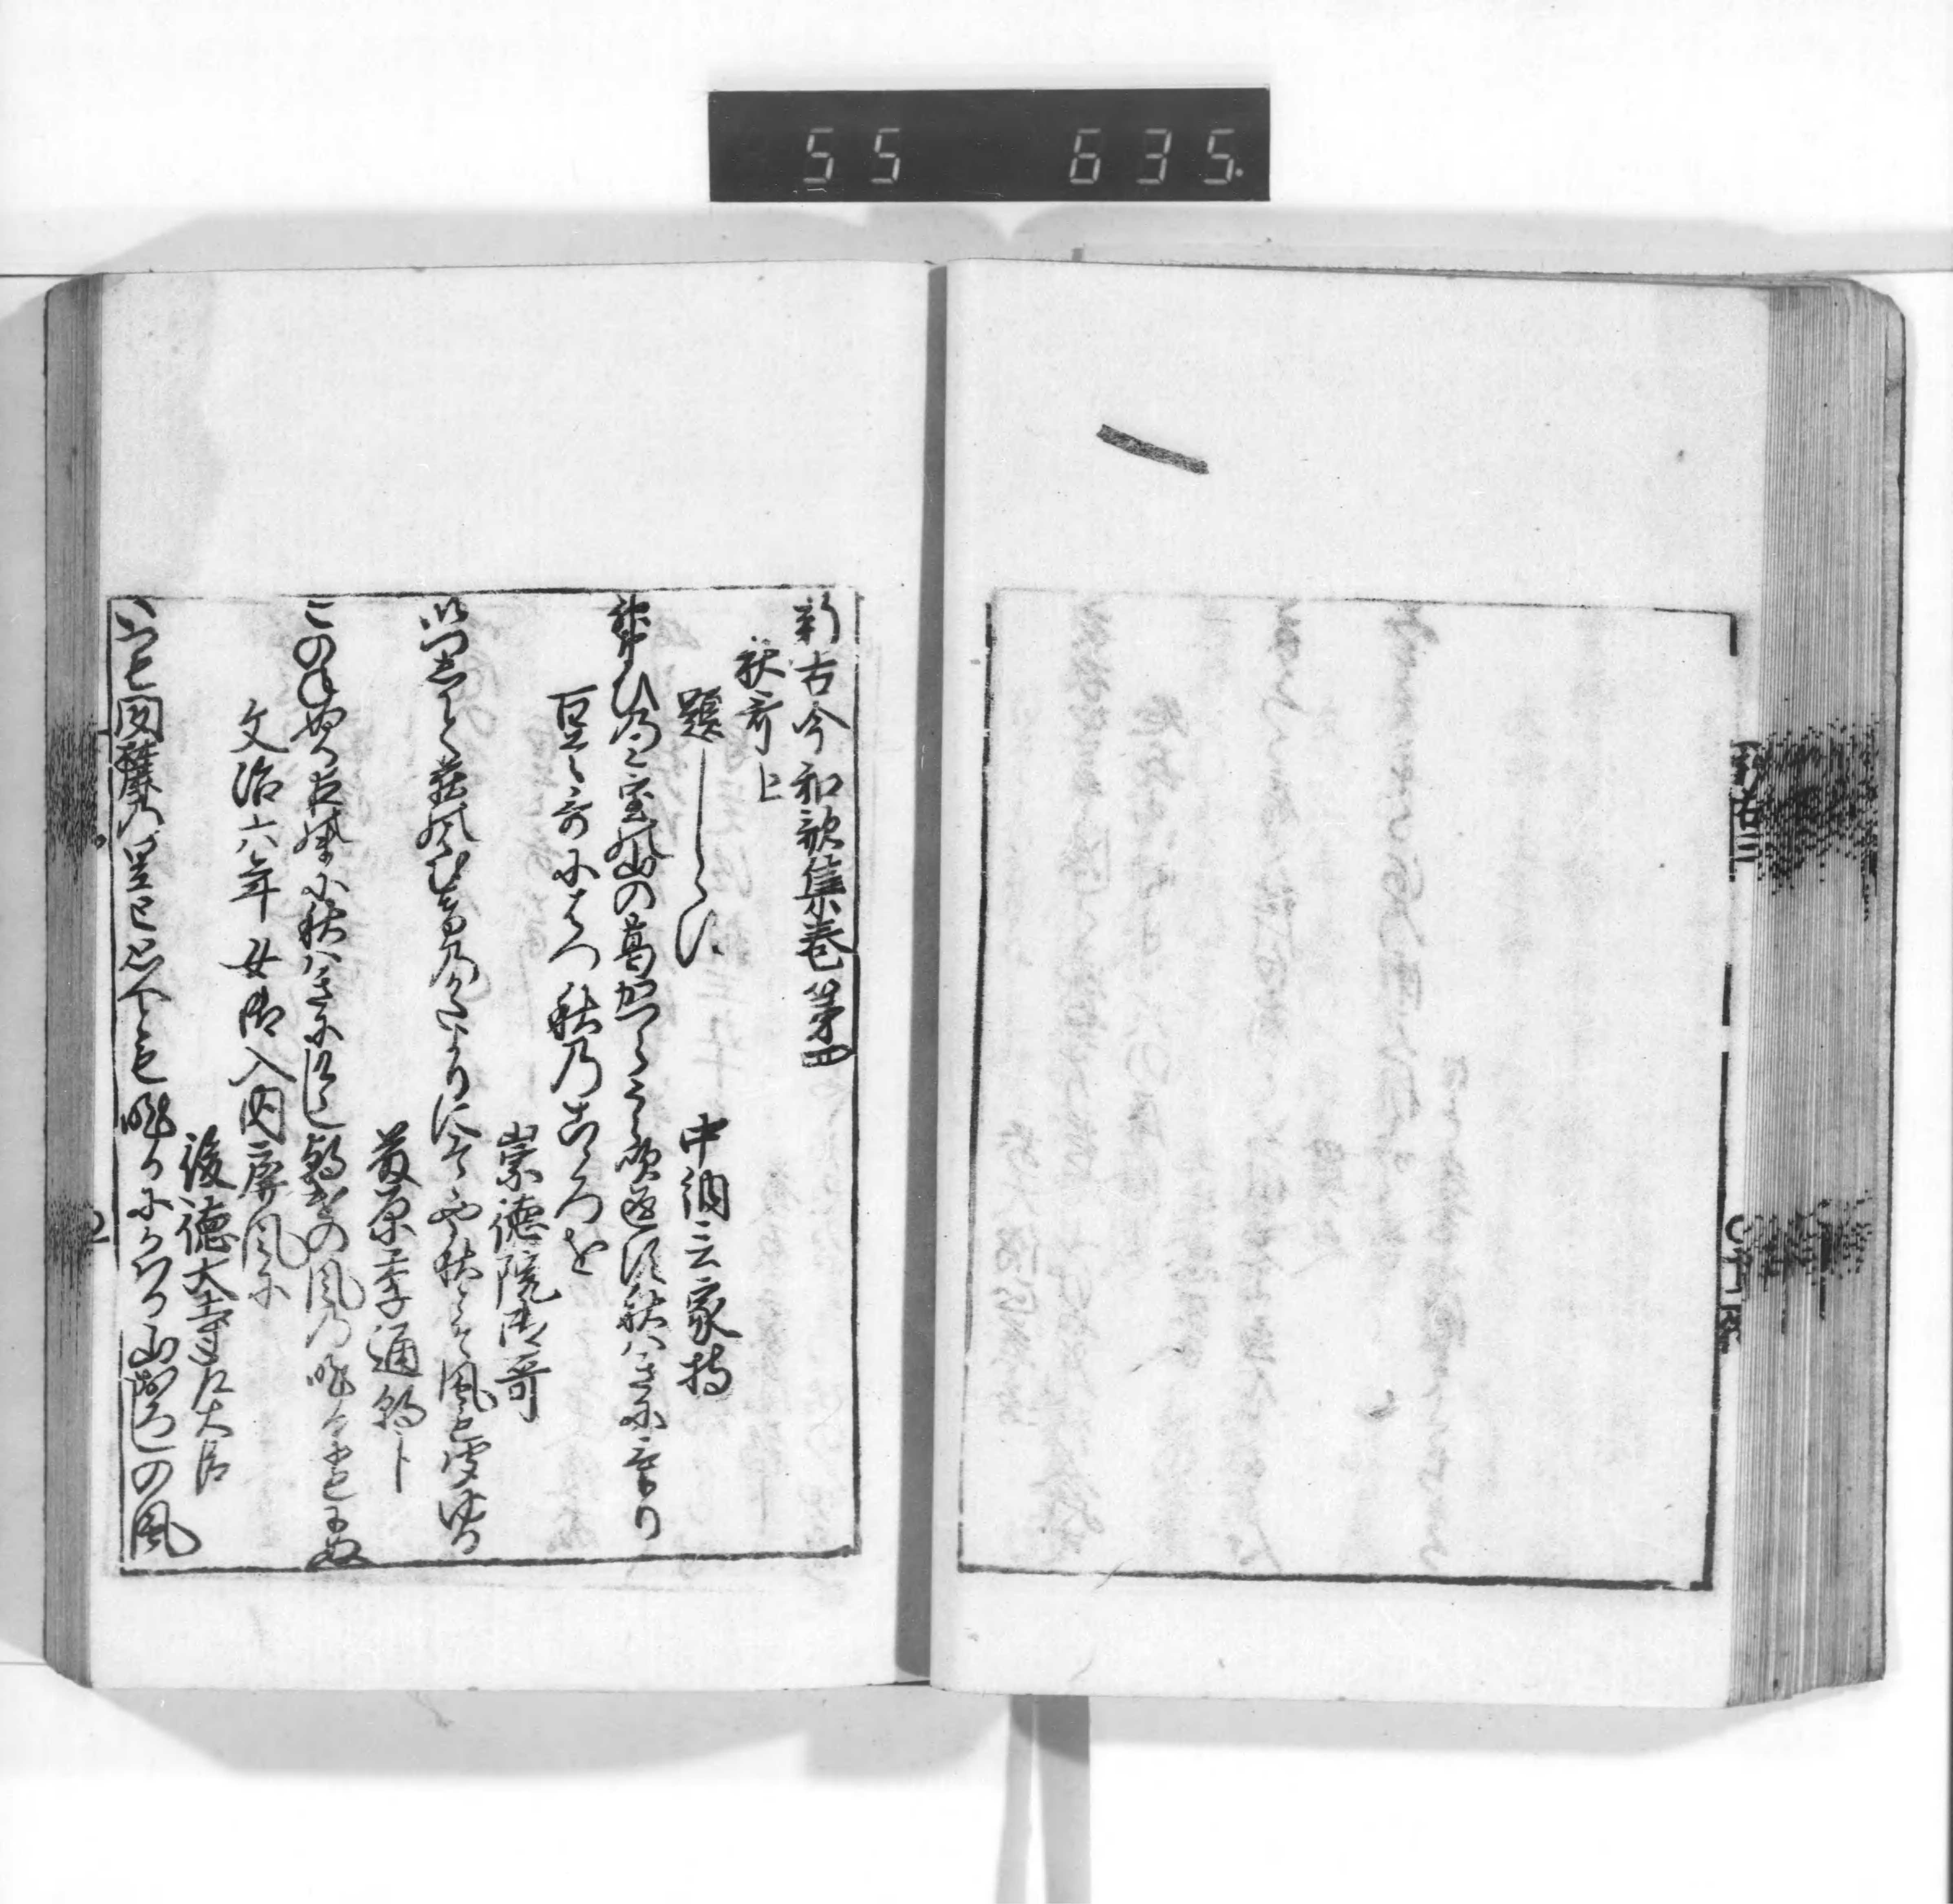 55 635.
新古今和歌集巻第四
秋哥上
題しらす
中納言家持
神なひのみ室の山の葛かつらうら吹返す秋はきにけり
百首哥にはつ秋のこころを
崇徳院御哥
いつしかと荻の葉むけのかたよりにそゝや秋とそ風も聞ゆる
藤原季通朝臣
このねぬる夜のまに秋はきにけらし朝けの風の昨日にもにぬ
文治六年女御入内屏風に
後徳大寺左大臣
いつも聞麓の里と思へとも昨日にかはる山おろしの風